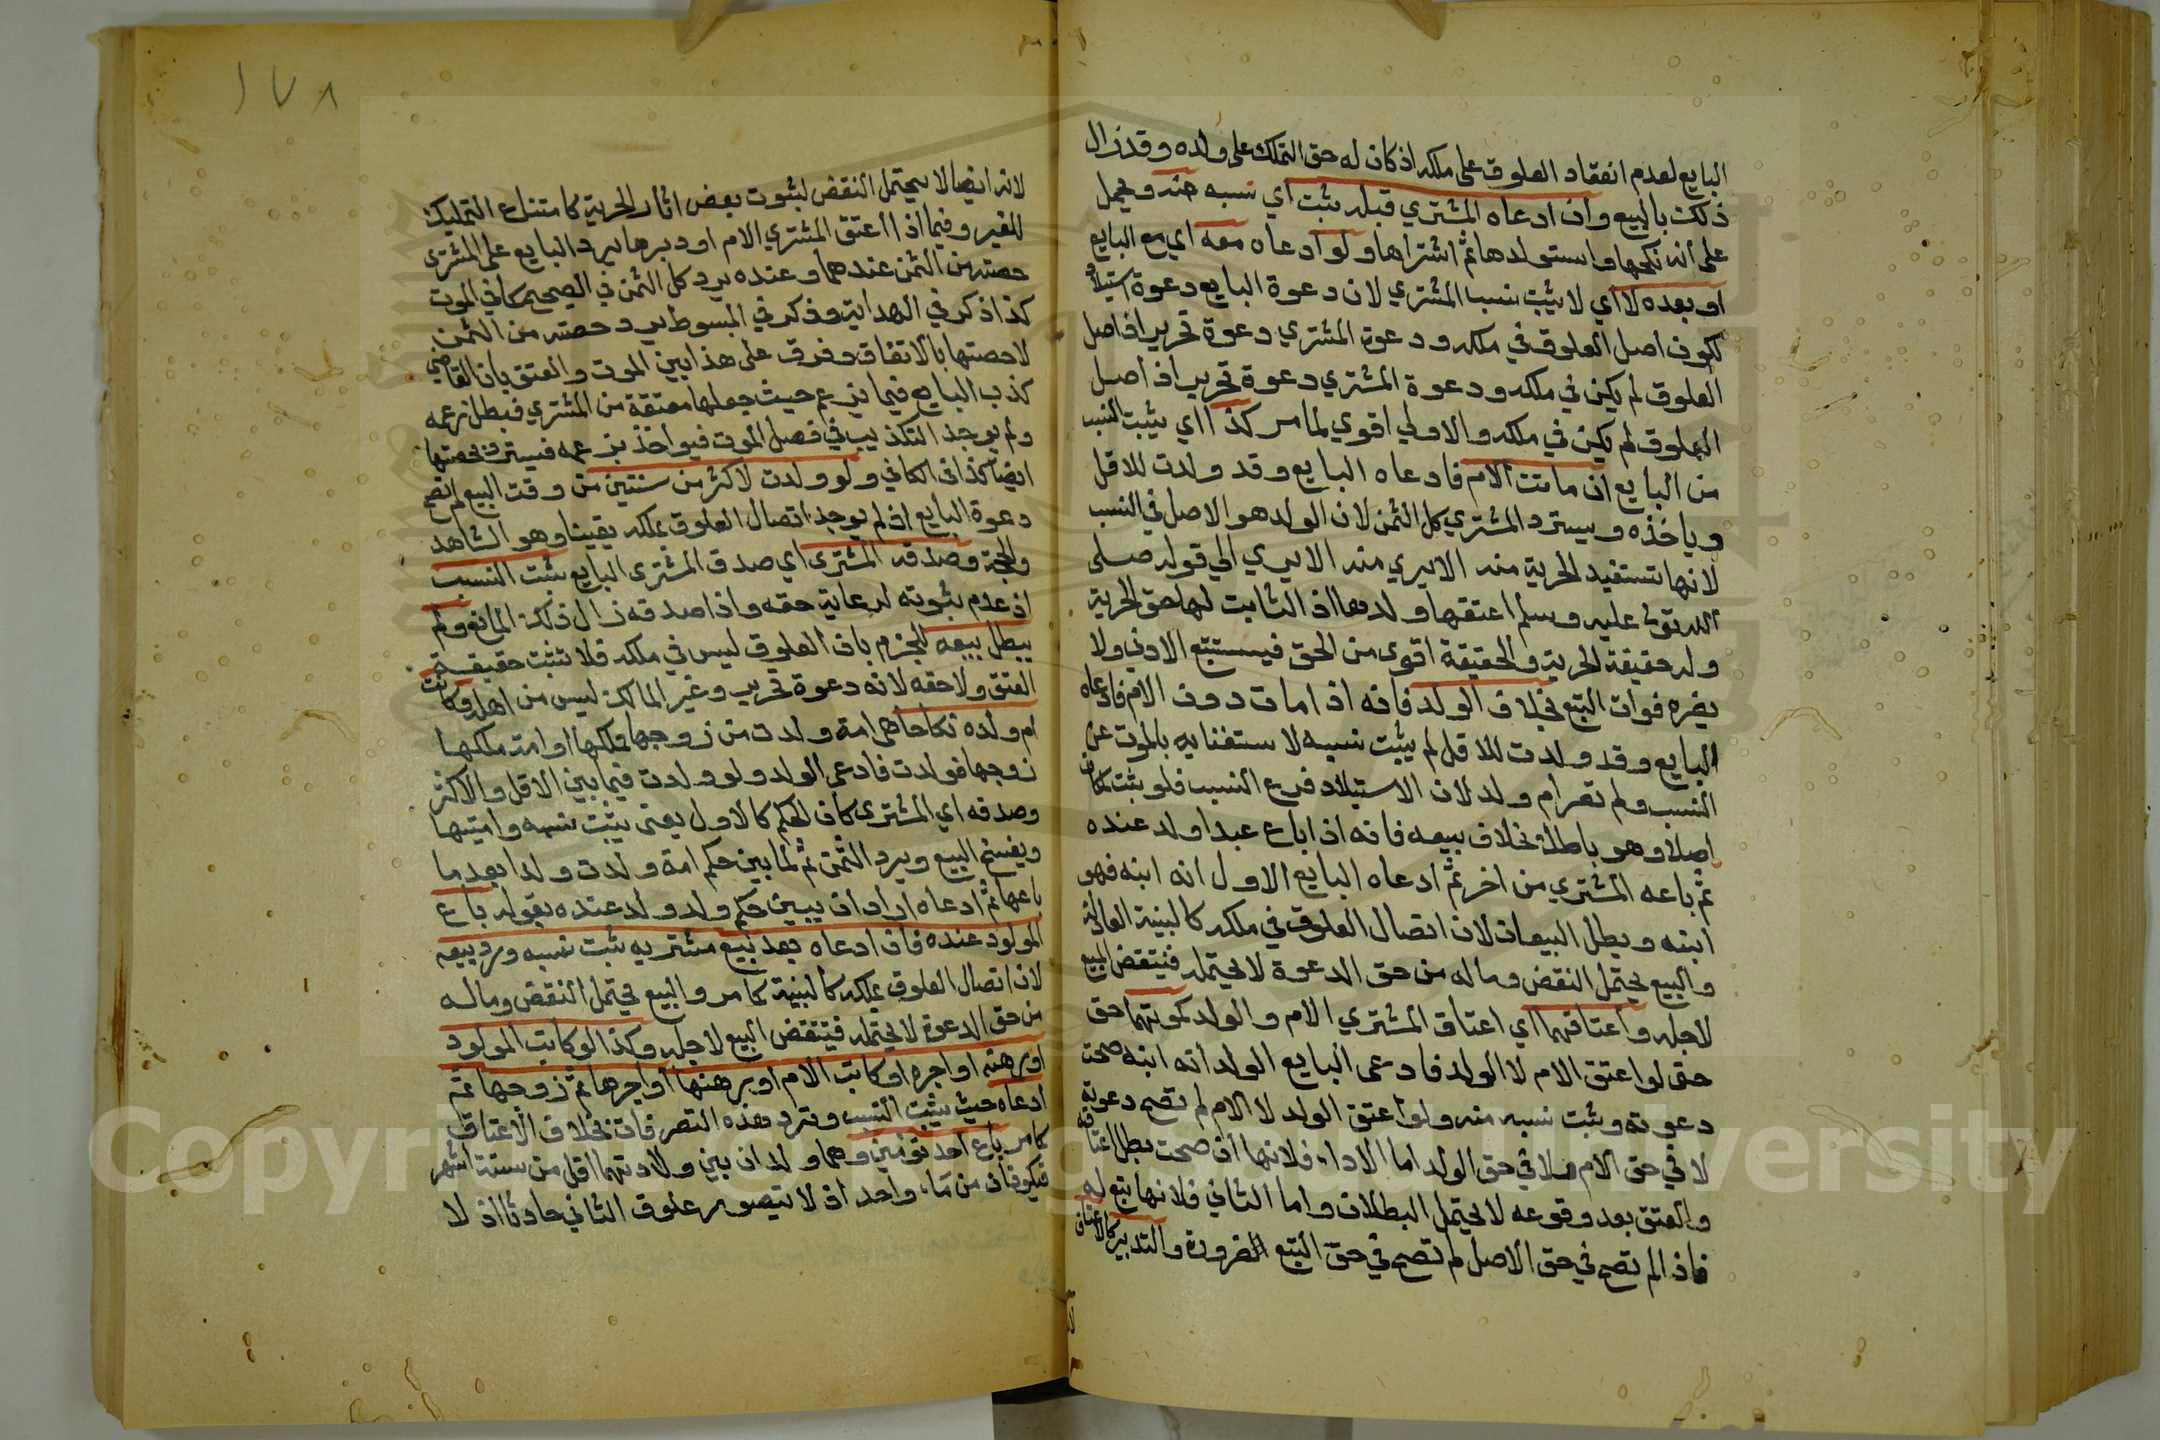 البايع لعدم انعقاد العلوق على ملكه اذ كان له حق التملك على ولده وقد زال
ذلك بالبيع وان ادعاه المشتري قبله يثبت اي نسبه منه ويحمل
على انه نكحها واستولدها ثم اشتراها ولو ادعاه معه اي مع البايع
او بعده لا اي لا يثبت نسب المشتري لان دعوة البايع دعوة استيلاد
لكون اصل العلوق في ملكه ودعوة المشتري دعوة تحرير اذ اصل
العلوق لم يكن في ملكه ودعوة المشتري دعوة تحرير اذ اصل
العلوق لم يكن في ملكه والاولى اقوى لما مر كذا اي يثبت النسب
من البايع ان ماتت الام فادعاه البايع وقد ولدت للاقل
وياخذه ويسترد المشتري كل الثمن لان الولد هو الاصل في النسب
لانها تستفيد الحرية منه الا يرى منه الا يرى الى قوله صلى
الله تعالى عليه وسلم اعتقها ولدها اذ الثابت لها حق الحرية
وله حقيقة الحرية والحقيقة اقوى من الحق فيستتبع الادنى ولا
يضره فوات التبع بخلاف الولد فانه اذا مات دون الام فادعاه
البايع وقد ولدت للاقل لم يثبت نسبه لاستغنايه بالموت عن
النسب ولم تصر ام ولد لان الاستيلاد فرع النسب فلو ثبت لكان
اصلا وهو باطل بخلاف بيعه فانه اذا باع عبدا ولد عنده
ثم باعه المشتري من اخر ثم ادعاه البايع الاول انه ابنه فهو
ابنه وبطل البيعان لان اتصال العلوق في ملكه كالبينة العادلة
والبيع يحتمل النقض وماله من حق الدعوة لا يحتمله فينتقض البيع
لاجله واعتاقهما اي اعتاق المشتري الام والولد كموتهما حتى
حتى لو اعتق الام لا الولد فادعى البايع الولد انه ابنه صحت
دعوته ويثبت نسبه منه ولو اعتق الولد لا الام لم تصح دعوته
لا في حق الام ولا في حق الولد اما الاداء فلانها ان صحت بطل اعتاقه
والعتق بعد وقوعه لا يحتمل البطلان واما الثاني فلانها تبع له
فاذا لم تصح في حق الاصل لم تصح في حق التبع الضرورة والتدبير كالاعتاق
١٧٨
لانه ايضا لا يحتمل النقض لثبوت بعض اثار الحرية كامتناع التمليك
للغير وفيما اذا اعتق المشتري الام او دبرها يرد البايع على المشتري
حصته من الثمن عندهما وعنده يرد كل الثمن في الصحيح كما في الموت
كذا ذكر في الهداية وذكر في المبسوط يرد حصته من الثمن
لا حصتها بالاتفاق وفرق على هذا بين الموت والعتق بان القاضي
كذب البايع فيما يزعم حيث جعلها معتقة من المشتري فبطل زعمه
ولم يوجد التكذيب في فصل الموت فيؤاخذ بزعمه فيسترد بحصتها
ايضا كذا في الكافي ولو ولدت لاكثر من سنتين من وقت البيع لم تصح
دعوة البايع اذ لم يوجد اتصال العلوق بملكه يقينا وهو الشاهد
والحجة وصدقه المشتري اي صدق المشتري البايع يثبت النسب
اذ عدم ثبوته لرعاية حقه واذا صدقه زال ذلك المانع ولم
يبطل بيعه للجزم بان العلوق ليس في ملكه فلا تثبت حقيقة
العتق ولا حقه لانه دعوة تحرير وغير المالك ليس من اهله وكانت
ام ولده نكاحا هي امة ولدت من زوجها فملكها او امة ملكها
زوجها فولدت فادعى الولد ولو ولدت فيما بين الاقل والاكثر
وصدقه اي المشتري كان الحكم كالاول يعني يثبت نسبه واميتها
ويفسخ البيع ويرد الثمن ثم لما بين حكم امة ولدت ولدا بعد ما
باعها ثم ادعاه اراد ان يبين حكم ولد ولد عنده بقوله باع
المولود عنده فان ادعاه بعد بيع مشتريه ثبت نسبه ورد بيعه
لان اتصال العلوق بملكه كالبينة كما مر والبيع يحتمل النقض وماله
من حق الدعوة لا يحتمله فينتقض البيع لاجله وكذا لو كاتب المولود
او رهنه او اجره او كاتب الام او رهنها او اجرها ثم زوجها ثم
ادعاه حيث يثبت النسب وترد هذه التصرفات بخلاف الاعتاق
كما مر باع احد توئمين وهما ولدان بين ولادتهما اقل من ستة اشهر
فيكونان من ماء واحد اذ لا يتصور علوق الثاني حادثا اذ لا
Copyright © King Saud University